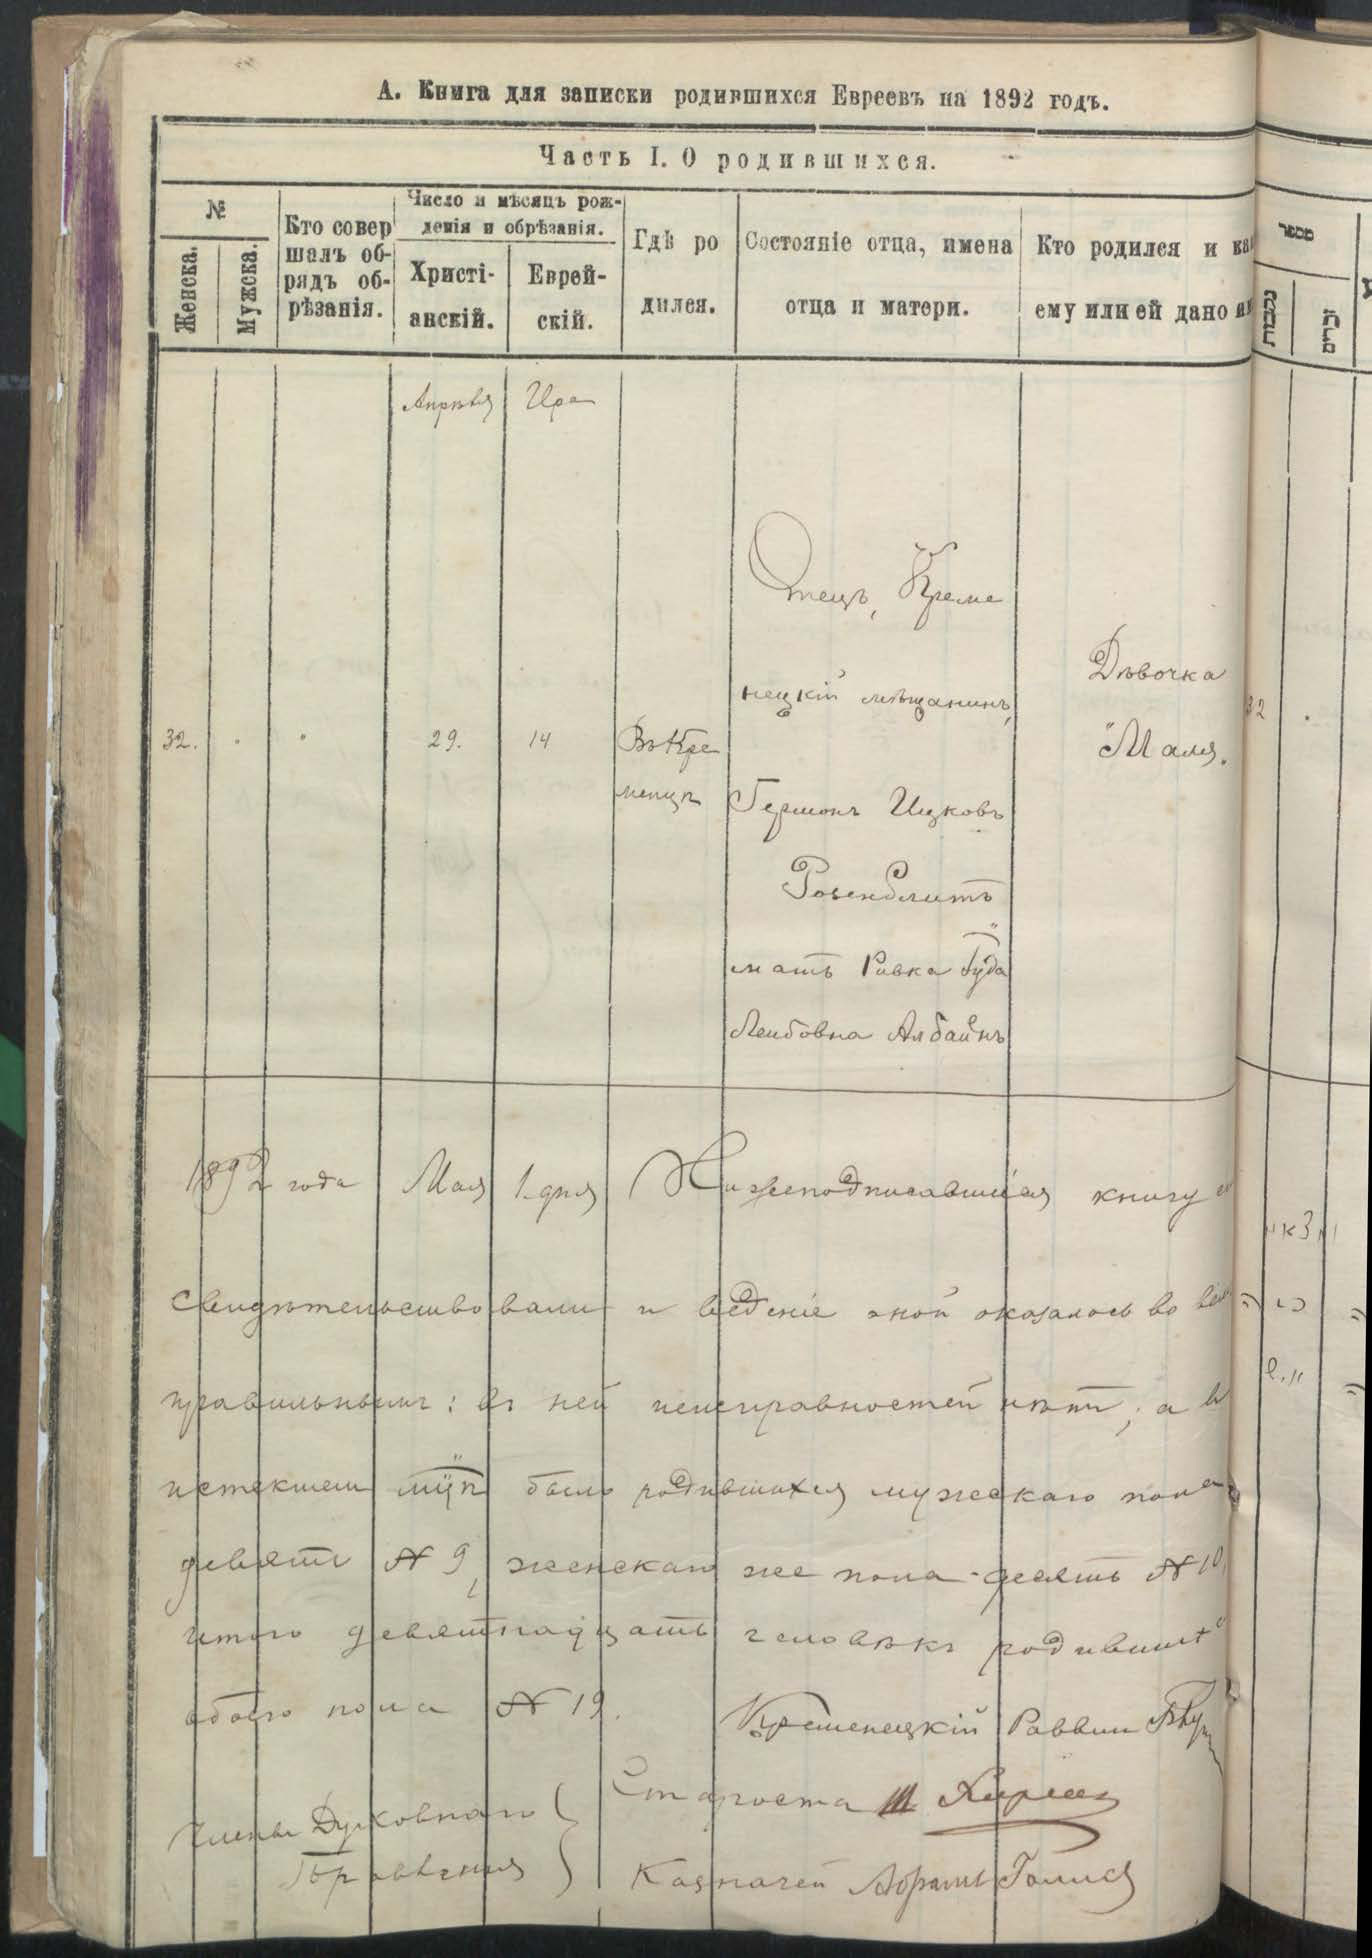 А. Книга для записки родившихся Евреевъ на 1892 годъ.
Часть I. О родившихся.
№
Женска.
Мужска.
Кто совер
шалъ об-
рядъ об-
рѣзанія.
Число и мѣсяцъ рож-
денія и обрѣзанія.
Христі-
анскій.
Еврей-
скій.
Гдѣ ро
дился.
Состояніе отца, имена
отца и матери.
Кто родился и ка
ему или ей дано и
מספר
נקבות
זכרים
Апрѣля
Ира
32.
29.
14
Въ Кре
менцѣ
Отецъ, Креме
нецкій мѣщанинъ,
Гершонъ Ицковъ
Розенблитъ
мать Ривка Гуда
Лейбовна Албаинъ
Дѣвочка
"Маля.
32
1892 года Мая 1 дня Нижеподписавшіеся книгу
свидѣтельствовали и веденіе оной оказалось во всемъ
правильнымъ: въ ней неисправностей нѣтъ; а в
истекшем м-цѣ было родившихся мужескаго пола
девять № 9, женскаго же пола - десять № 10,
итого девятнадцать человѣкъ родивших
обоего пола № 19.
Кременецкій Раввин
Члены Духовнаго
Правленія
Староста
Казначей Абрамъ